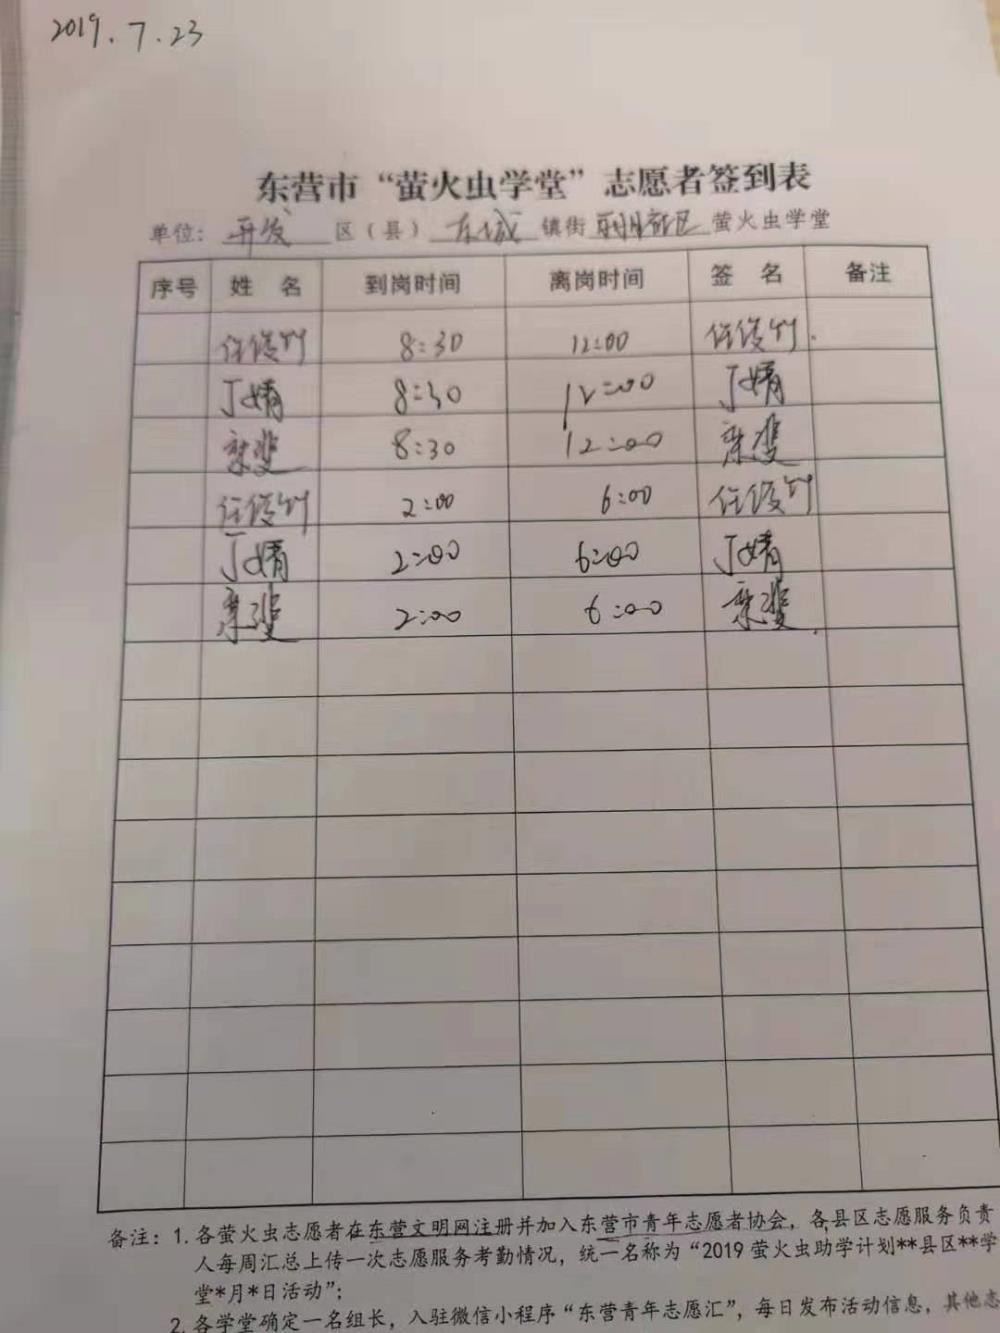 2019.7.23
东营市“萤火虫学堂”志愿者签到表
单位: 开发 区(县) 东城 镇街 社区 萤火虫学堂
序号 姓 名 到岗时间 离岗时间 签 名 备注
任俊竹 8:30 12:00 任俊竹
丁婧 8:30 12:00 丁婧
8:30 12:00
任俊竹 2:00 6:00 任俊竹
丁婧 2:00 6:00 丁婧
2:00 6:00
备注: 1. 各萤火虫志愿者在东营文明网注册并加入东营市青年志愿者协会, 各县区志愿服务负责
人每周汇总上传一次志愿服务考勤情况, 统一名称为“2019 萤火虫助学计划**县区**学
堂*月*日活动”;
2. 各学堂确定一名组长, 入驻微信小程序“东营青年志愿汇”, 每日发布活动信息, 其他志